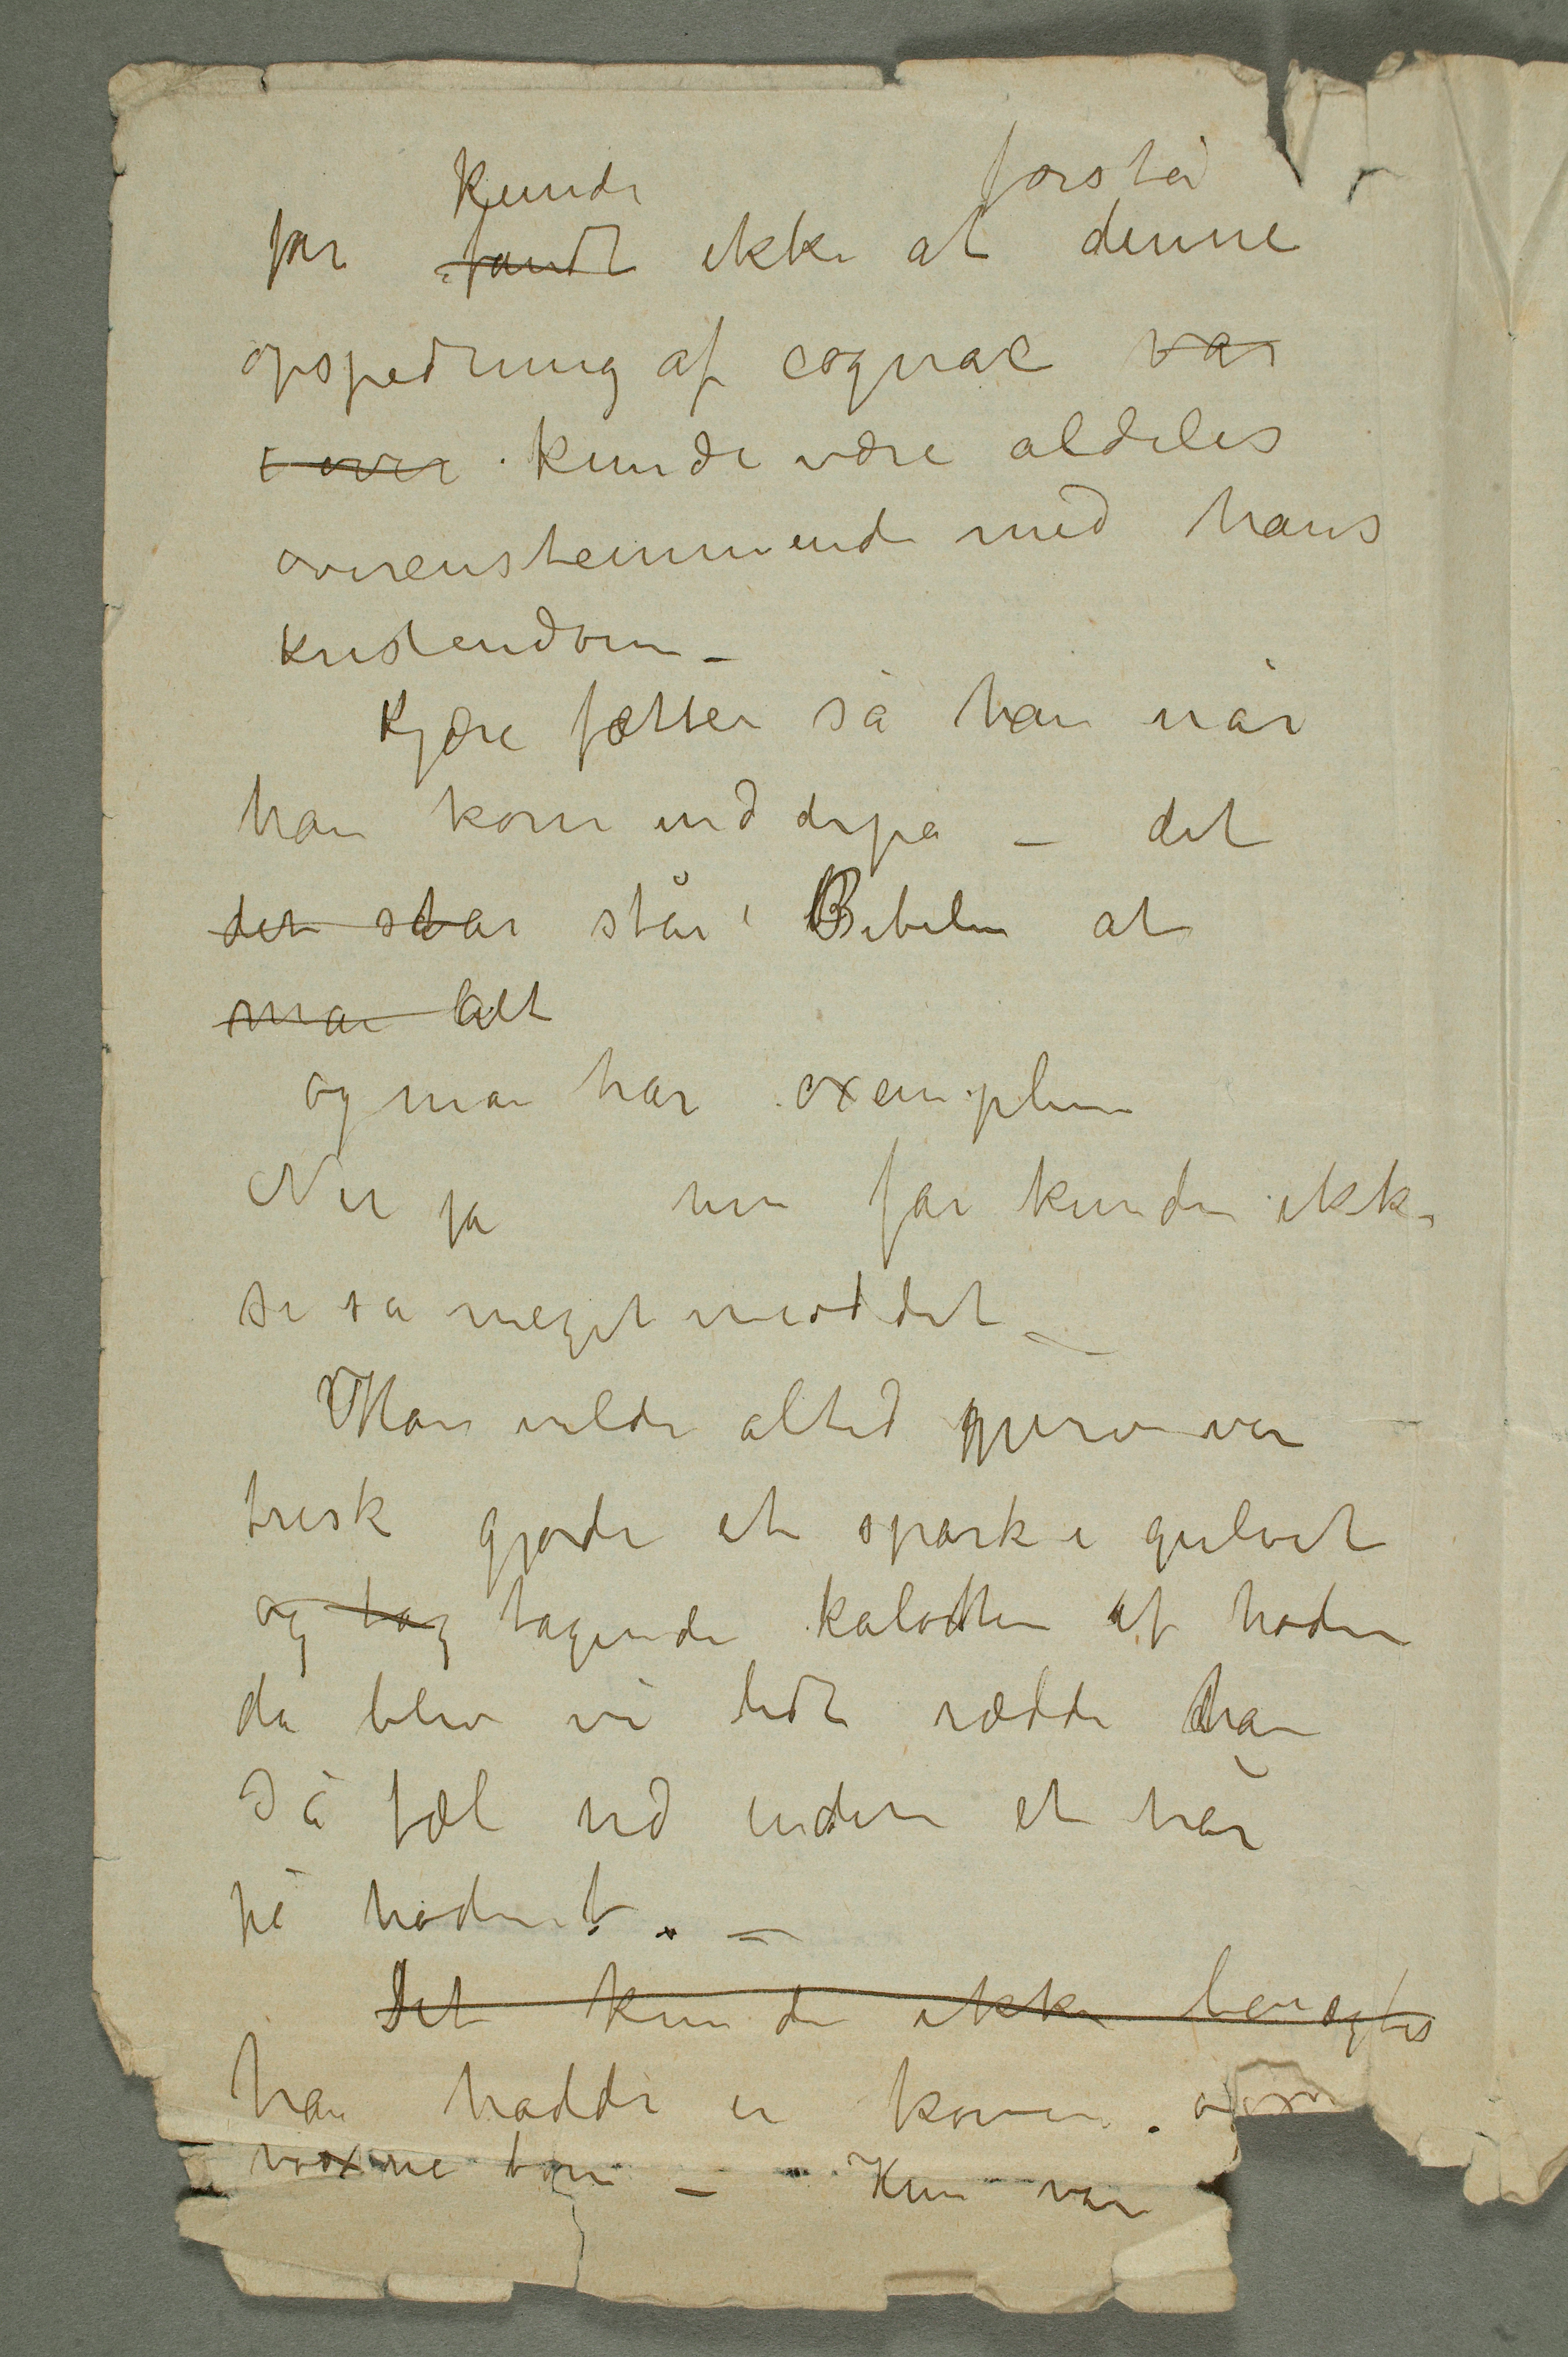 kunde forstå
far fandt ikke at denne
opspedning af cognac var
i over kunde være aldeles
overensstemmende med hans
kristendom –
Kjære fætter sa han når
han kom ind derpå – det
det står står i Bibelen at
man alt
og man har exemplene
Nu ja men far kunde ikke
si så meget mod det –
Han vilde altid
trisk gjorde et spark i gulvet
og tog tagende kalotten af hodet
da blev vi lidt rædde han
så fæl ud uden et hår
på hodet. –
Det kunde ikke benægtes
han hadde en kone. og
voxne børn – Hun var